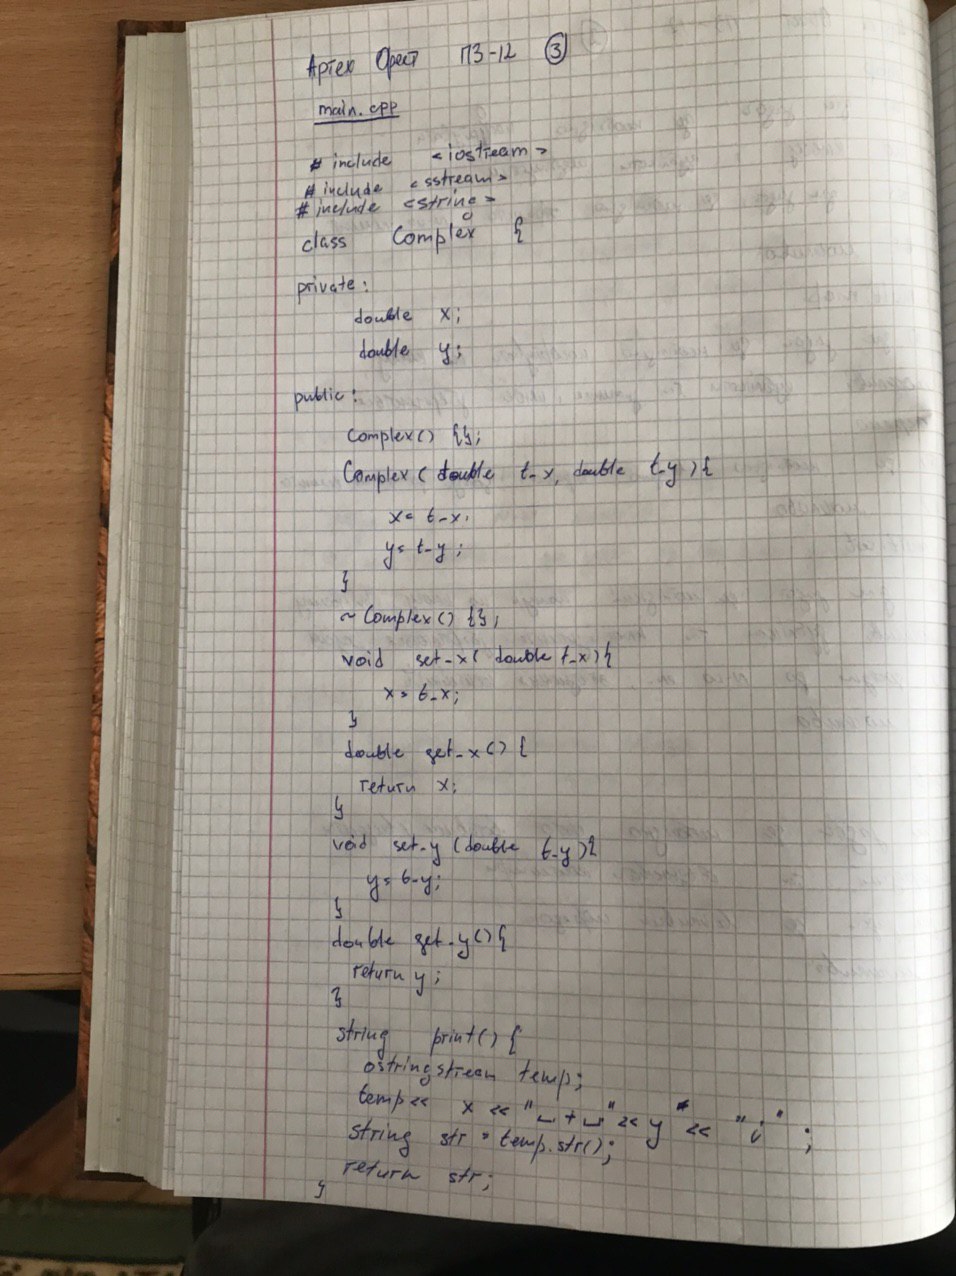 Артех Орест ПЗ-12 ③
main.cpp
# include <iostream>
# include <sstream>
# include <string>
class Complex {
private:
double x;
double y;
public:
Complex() {};
Complex ( double t_x, double t_y ) {
x = t_x;
y = t_y ;
}
~ Complex() {};
void set_x( double t_x ) {
x = t_x;
}
double get_x() {
return x;
}
void set_y (double t_y ) {
y = t_y;
}
double get_y() {
return y;
}
string print() {
ostringstream temp;
temp << x << "␣+␣" << y << "i" ;
string str = temp.str();
return str;
}